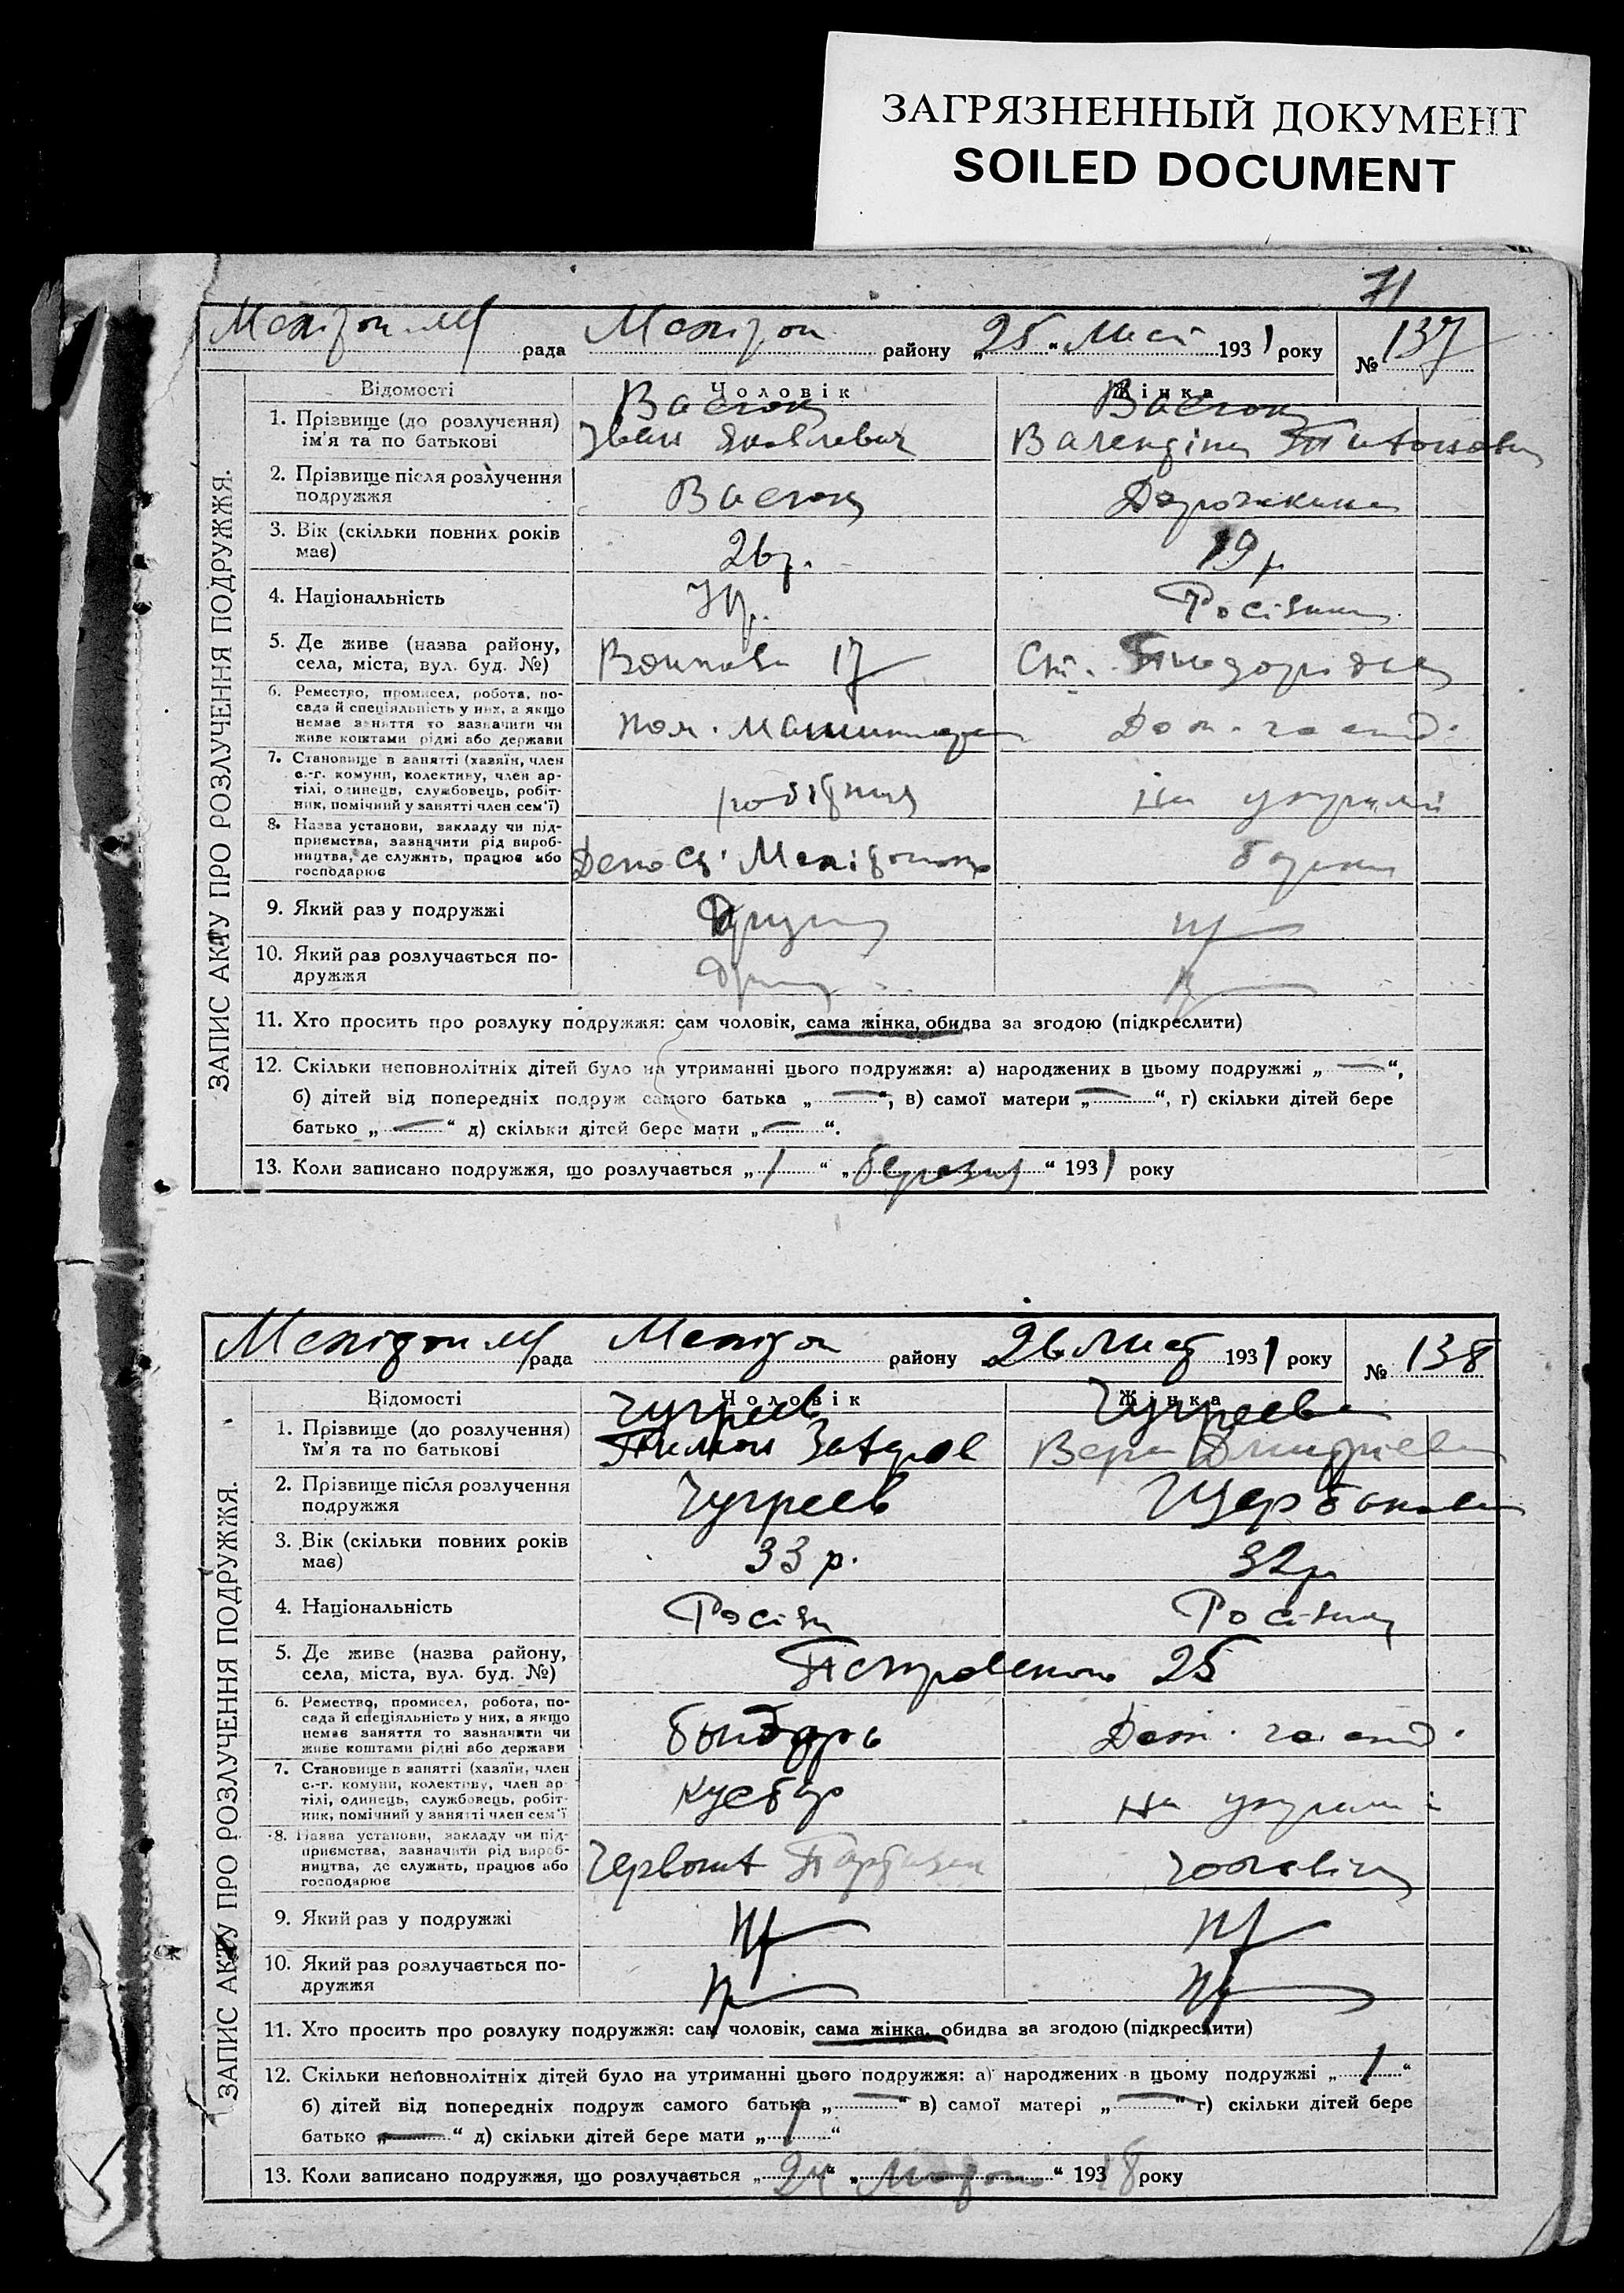 ЗАГРЯЗНЕННЫЙ ДОКУМЕНТ
SOILED DOCUMENT
71
рада району 25 Лист 1931 року № 137
ЗАПИС АКТУ ПРО РОЗЛУЧЕННЯ ПОДРУЖЖЯ.
Відомості Чоловік Жінка
1. Прізвище (до розлучення)
ім'я та по батькові
Іван Яковлевич
2. Прізвище після розлучення
подружжя
3. Вік (скільки повних років
має)
26р. 19р.
4. Національність
Укр. Росіянка
5. Де живе (назва району,
села, міста, вул. буд. №)
17
6. Ремество, промисел, робота, по-
сада й спеціяльність у них, а якщо
немає заняття то зазначити чи
живе коштами рідні або держави
пом. машиніста Дом. госпо.
7. Становище в занятті (хазяїн, член
с.-г. комуни, колективу, член ар-
тілі, одинець, службовець, робіт-
ник, помічний у занятті член сем'ї)
робітник На утриман
8. Назва установи, закладу чи під-
приємства, зазначити рід вироб-
ництва, де служить, працює або
господарює
Депо ст.
9. Який раз у подружжі
10. Який раз розлучається по-
дружжя
11. Хто просить про розлуку подружжя: сам чоловік, сама жінка, обидва за згодою (підкреслити)
12. Скільки неповнолітніх дітей було на утриманні цього подружжя: а) народжених в цьому подружжі „ — “,
б) дітей від попередніх подруж самого батька „ — “, в) самої матери „ — “, г) скільки дітей бере
батько „ — “ д) скільки дітей бере мати „ — “.
13. Коли записано подружжя, що розлучається „ 1 “ „ березня “ 1931 року
рада району 26 Лист 1931 року № 138
ЗАПИС АКТУ ПРО РОЗЛУЧЕННЯ ПОДРУЖЖЯ.
Відомості Чоловік Жінка
Чугреев Чугреева
1. Прізвище (до розлучення)
їм'я та по батькові
Вера Дмитриевна
2. Прізвище після розлучення
подружжя
Чугреев Щербакова
3. Вік (скільки повних років
має)
33 р. 32р
4. Національність
Росіян Росіянка
5. Де живе (назва району,
села, міста, вул. буд. №)
25
6. Ремество, промисел, робота, по-
сада й спеціяльність у них, а якщо
немає заняття то зазначити чи
живе коштами рідні або держави
бондарь Дом. госпо.
7. Становище в занятті (хазяїн, член
с.-г. комуни, колективу, член ар-
тілі, одинець, службовець, робіт-
ник, помічний у занятті член сем'ї
кустар На утриман
8. Назва установи, закладу чи під-
приємства, зазначити рід вироб-
ництва, де служить, працює або
господарює
чоловіка
9. Який раз у подружжі
10. Який раз розлучається по-
дружжя
11. Хто просить про розлуку подружжя: сам чоловік, сама жінка, обидва за згодою (підкреслити)
12. Скільки неповнолітніх дітей було на утриманні цього подружжя: а) народжених в цьому подружжі „ 1 “
б) дітей від попередніх подруж самого батька „ — “ в) самої матері „ — “ г) скільки дітей бере
батько „ — “ д) скільки дітей бере мати „ 1 “
13. Коли записано подружжя, що розлучається „ 24 “ року